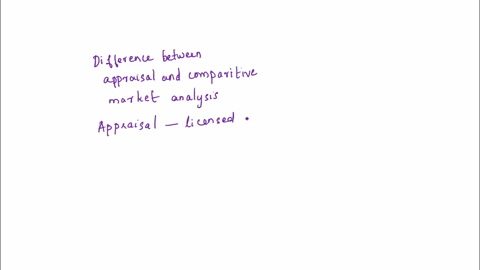 Difference between
appraisal and comparitive
market analysis
Appraisal — licensed